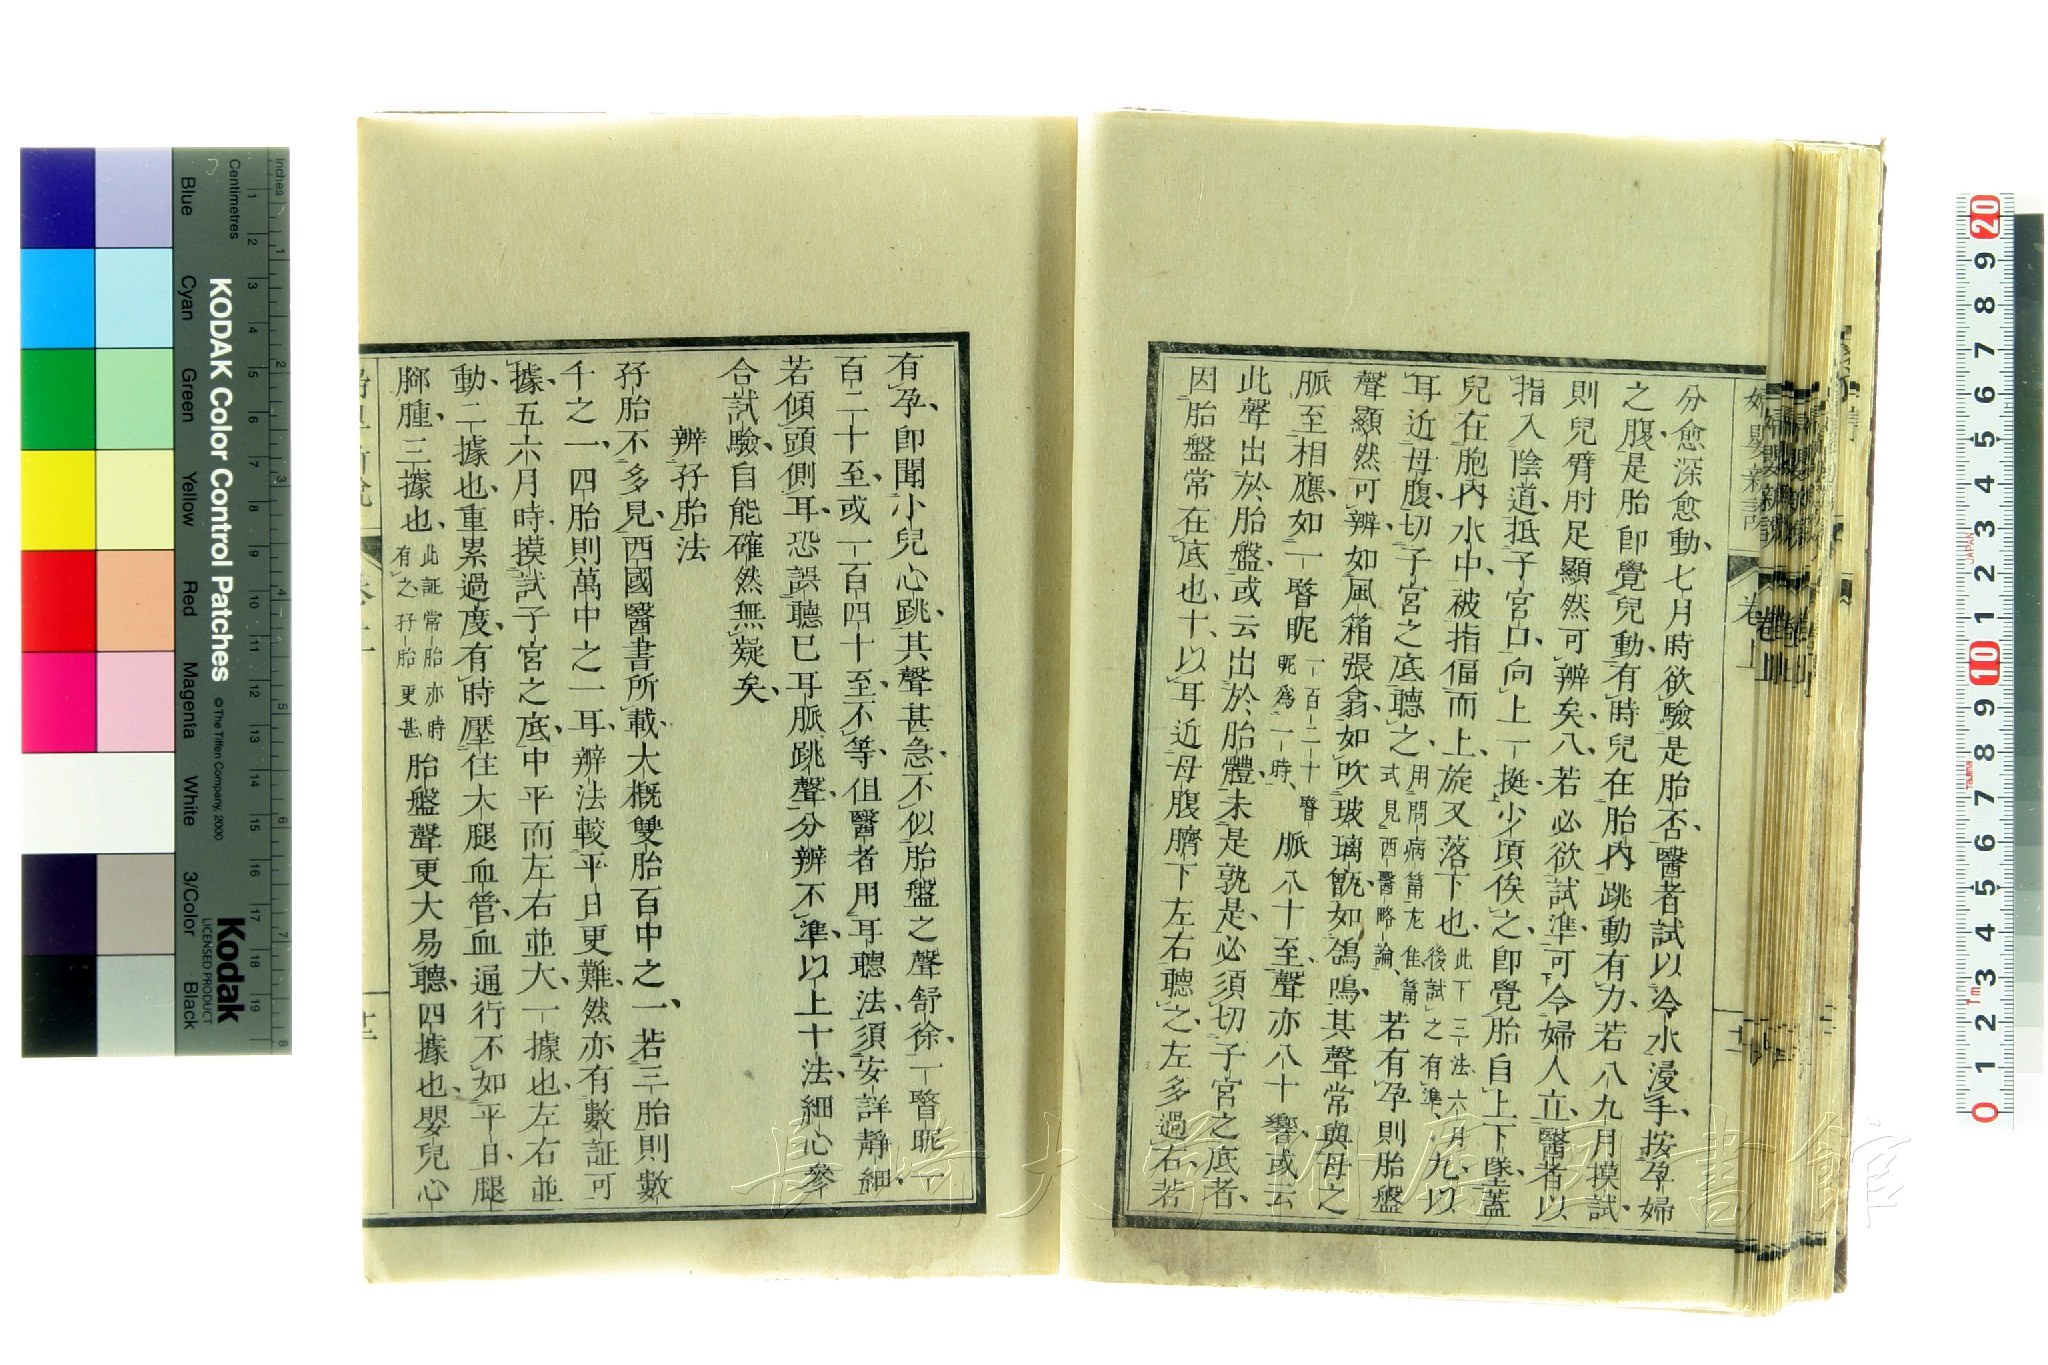 分愈深愈動、七月時欲驗是胎否、醫者試以冷水浸手、按孕婦
之腹、是胎卽覺兒動、有時兒在胎內跳動有力、若八九月摸試、
則兒臂肘足顯然可辨矣、八、若必欲試準、可令婦人立、醫者以
指入陰道、抵子宮口、向上一挺、少頃俟之、卽覺胎自上下墜、蓋
兒在胞內水中、被指偪而上、旋又落下也、此下三法六月後試之有準、九、以
耳近母腹、切子宮之底聽之、用問病筩尤佳筩式見西醫略論、若有孕則胎盤
聲顯然可辨、如風箱張翕、如吹玻璃瓶、如鴿鳴、其聲常與母之
脈至相應、如一瞥眤一百二十瞥眤爲一時、脈八十至、聲亦八十響、或云
此聲出於胎盤、或云出於胎體、未是孰是、必須切子宮之底者、
因胎盤常在底也、十、以耳近母腹臍下左右聽之、左多過右、若
婦嬰新說
卷上
有孕、卽聞小兒心跳、其聲甚急、不似胎盤之聲舒徐、一瞥眤、
百二十至、或一百四十至不等、但醫者用耳聽法、須安詳靜細、
若傾頭側耳、恐誤聽已耳脈跳聲、分辨不準、以上十法、細心參
合試驗、自能確然無疑矣、
辨孖胎法
孖胎不多見、西國醫書所載、大概雙胎百中之一、若三胎則數
千之一、四胎則萬中之一耳、辨法較平日更難、然亦有數証可
據、五六月時、摸試子宮之底、中平而左右並大、一據也、左右並
動、二據也、重累過度、有時壓住大腿血管、血通行不如平日、腿
脚腫、三據也、此証常胎亦時有之孖胎更甚、胎盤聲更大易聽、四據也、嬰兒心
KODAK Color Control Patches
© The Tiffen Company, 2000
Kodak
LICENSED PRODUCT
Inches
Centimetres
Blue
Cyan
Green
Yellow
Red
Magenta
White
3/Color
Black
長崎大学附属図書館